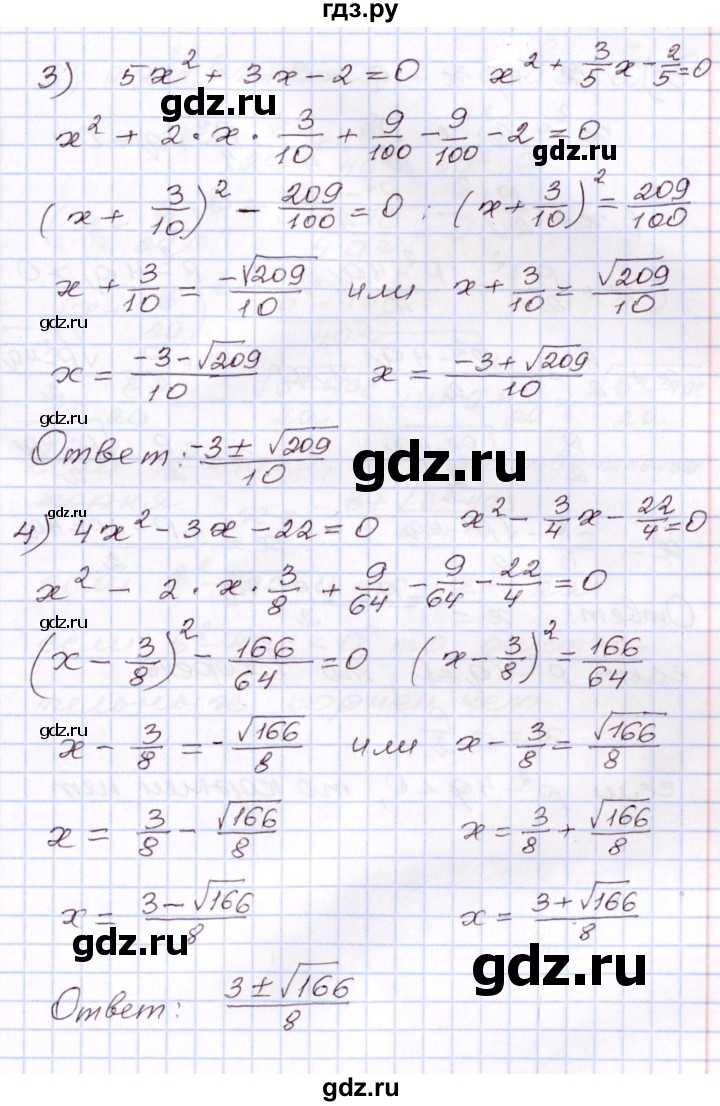 гдз.ру
3) 5x² + 3x - 2 = 0 x² + 3/5 x - 2/5 = 0
gdz.ru
x² + 2 · x · 3/10 + 9/100 - 9/100 - 2 = 0
gdz.ru
(x + 3/10)² - 209/100 = 0; (x + 3/10)² = 209/100
x + 3/10 = -√209/10 или x + 3/10 = √209/10
gdz.ru
x = (-3 - √209)/10 x = (-3 + √209)/10
gdz.ru
Ответ: (-3 ± √209)/10
gdz.ru
4) 4x² - 3x - 22 = 0 x² - 3/4 x - 22/4 = 0
x² - 2 · x · 3/8 + 9/64 - 9/64 - 22/4 = 0
gdz.ru
(x - 3/8)² - 166/64 = 0 (x - 3/8)² = 166/64
gdz.ru
x - 3/8 = -√166/8 или x - 3/8 = √166/8
x = 3/8 - √166/8 x = 3/8 + √166/8
x = (3 - √166)/8 x = (3 + √166)/8
gdz.ru
gdz.ru
Ответ: (3 ± √166)/8
gdz.ru
gdz.ru